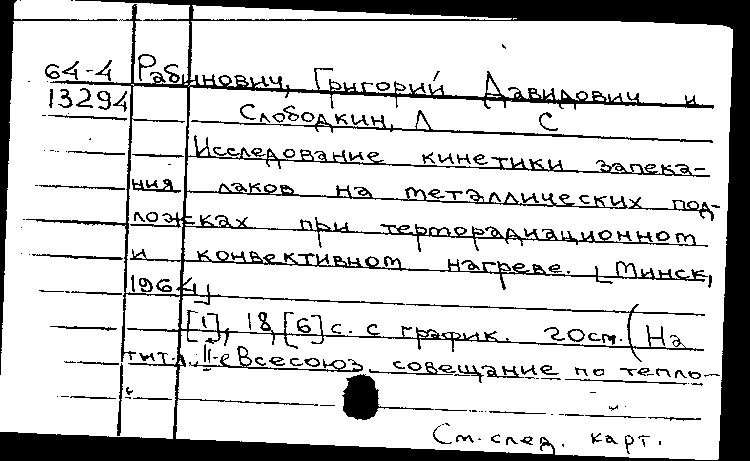 64-4 Рабинович, Григорий Давидович и
13294 Слободкин, Л С
Исследование кинетики запека-
ния лаков на металлических под-
ложках при терморадиационном
и конвективном нагреве. [Минск,
1964]
[1], 18, [6] с. с график. 20см. (На
тит. л. II-е Всесоюз. совещание по тепло-
См. след. карт.